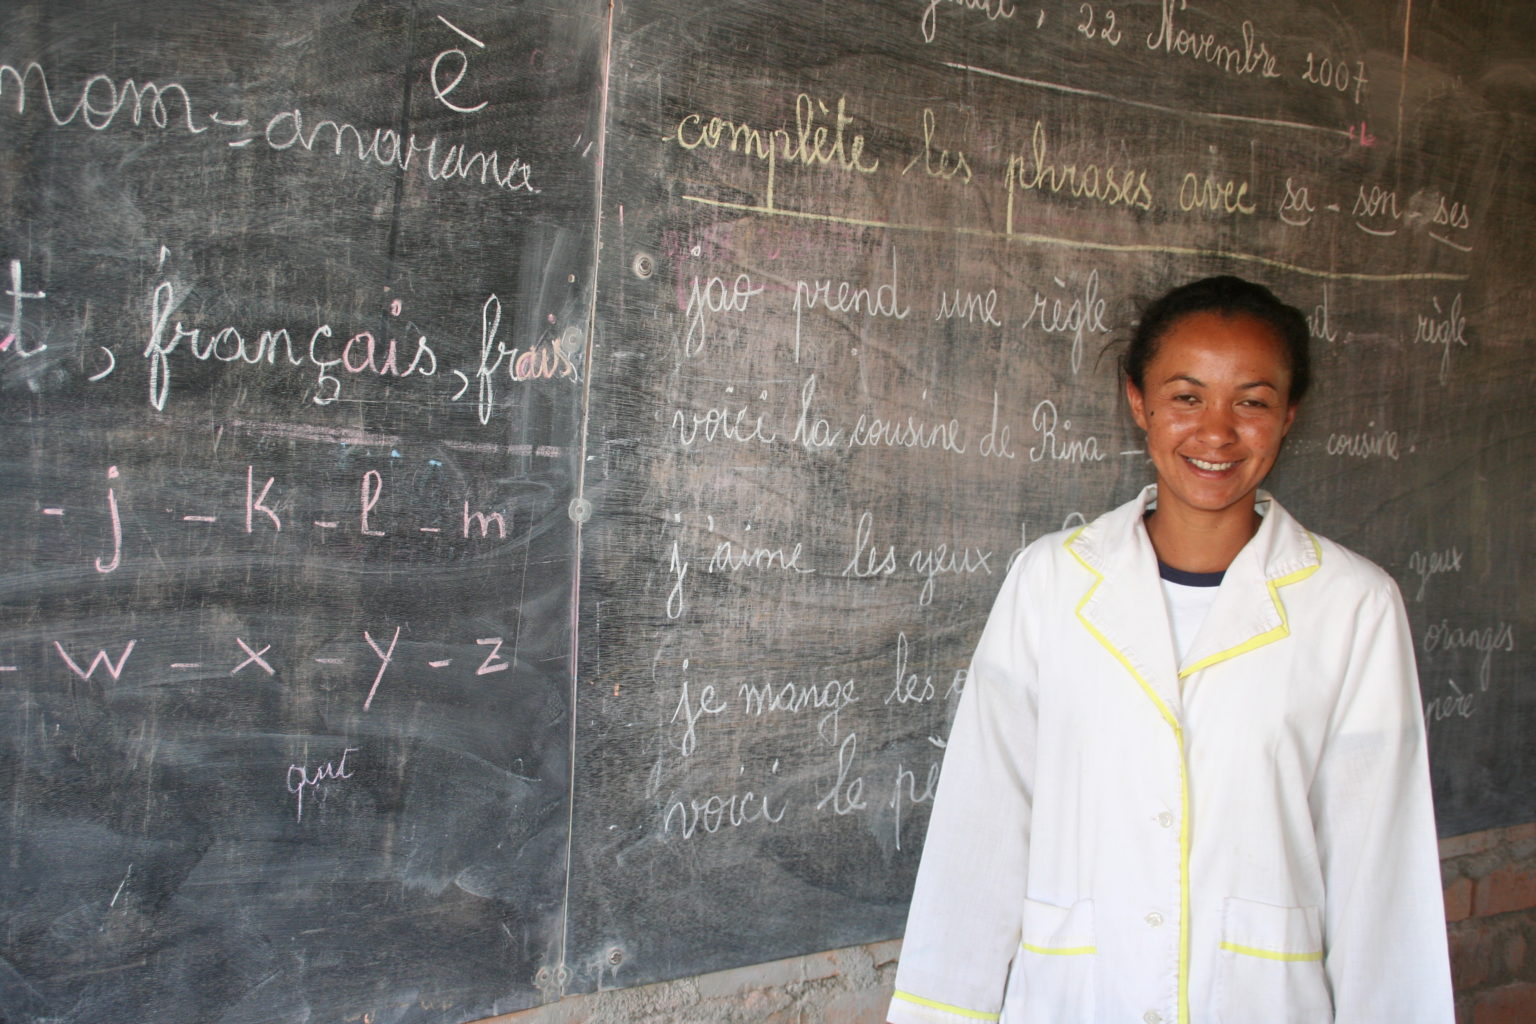 è
nom = anarana
t, français, frais
5
- j - k - l - m
- w - x - y - z
22 Novembre 2007
complète les phrases avec sa - son - ses
jao prend une règle règle
voici la cousine de Rina - cousine.
j'aime les yeux yeux
je mange les oranges
voici le père